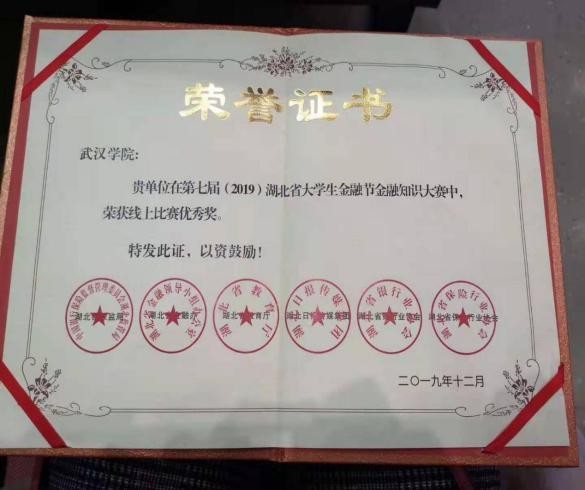 荣誉证书
武汉学院：
贵单位在第七届（2019）湖北省大学生金融节金融知识大赛中，
荣获线上比赛优秀奖。
特发此证，以资鼓励！
中国银行保险监督管理委员会湖北监管局
湖北省教育厅
湖北日报传媒集团
湖北省银行业协会
湖北省保险行业协会
二〇一九年十二月